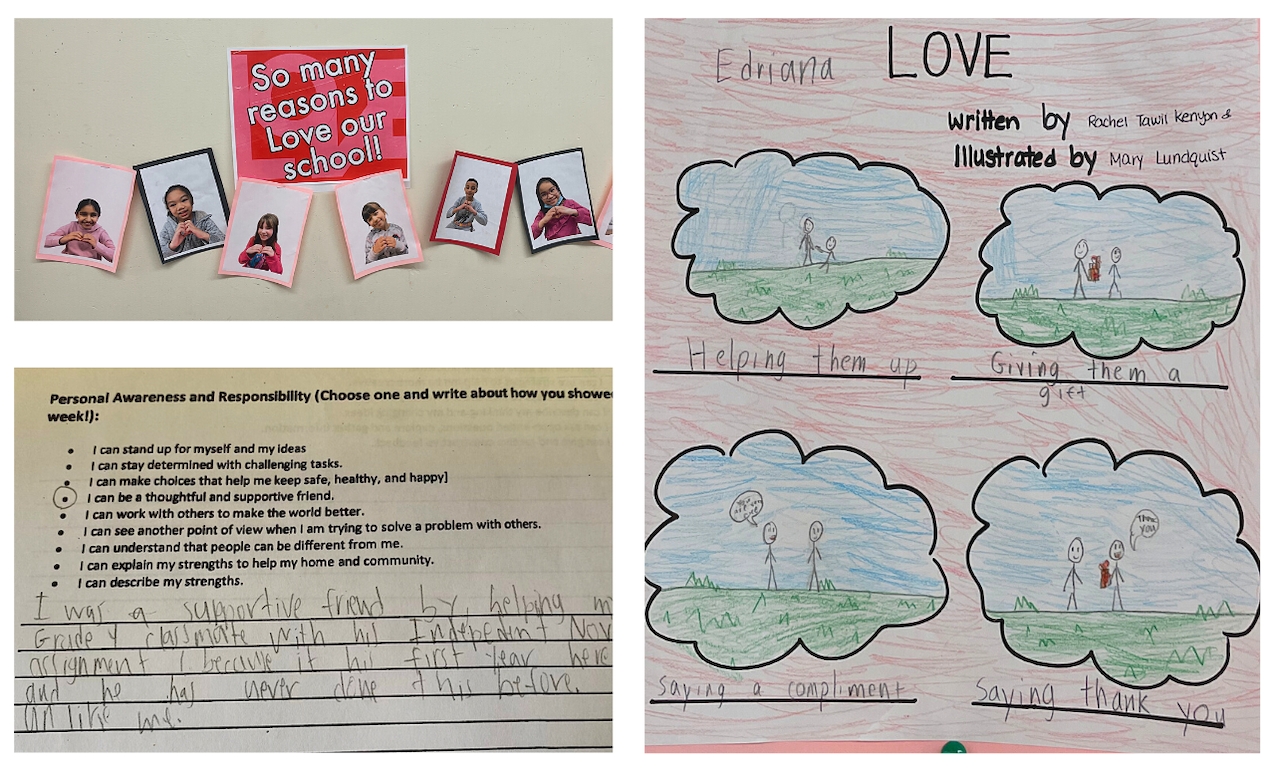 So many
reasons to
Love our
school!
Personal Awareness and Responsibility (Choose one and write about how you showe
week!):
I can stand up for myself and my ideas
I can stay determined with challenging tasks.
I can make choices that help me keep safe, healthy, and happy]
I can be a thoughtful and supportive friend.
I can work with others to make the world better.
I can see another point of view when I am trying to solve a problem with others.
I can understand that people can be different from me.
I can explain my strengths to help my home and community.
I can describe my strengths.
I was a supportive friend by, helping m
Grade 4 classmate with his Indepedint Nov
assignment, because it his first year here
and he has never done this before.
unlike me.
Edriana
LOVE
Written by Rachel Tawil Kenyon &
Illustrated by Mary Lundquist
Helping them up
Giving them a
gift
Saying a compliment
thank
you
Saying thank you